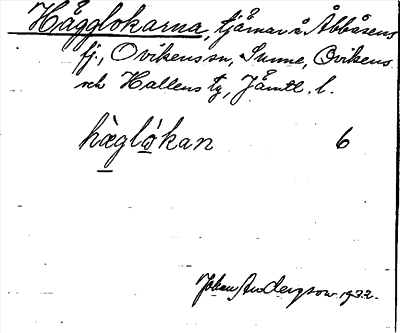 Hägglokarna, tjärnar å Åbbåsens
fj., Ovikens sn, Sunne, Ovikens
och Hallens tg, Jämtl. l.
hàglókan 6
Johan Anderson 1932.